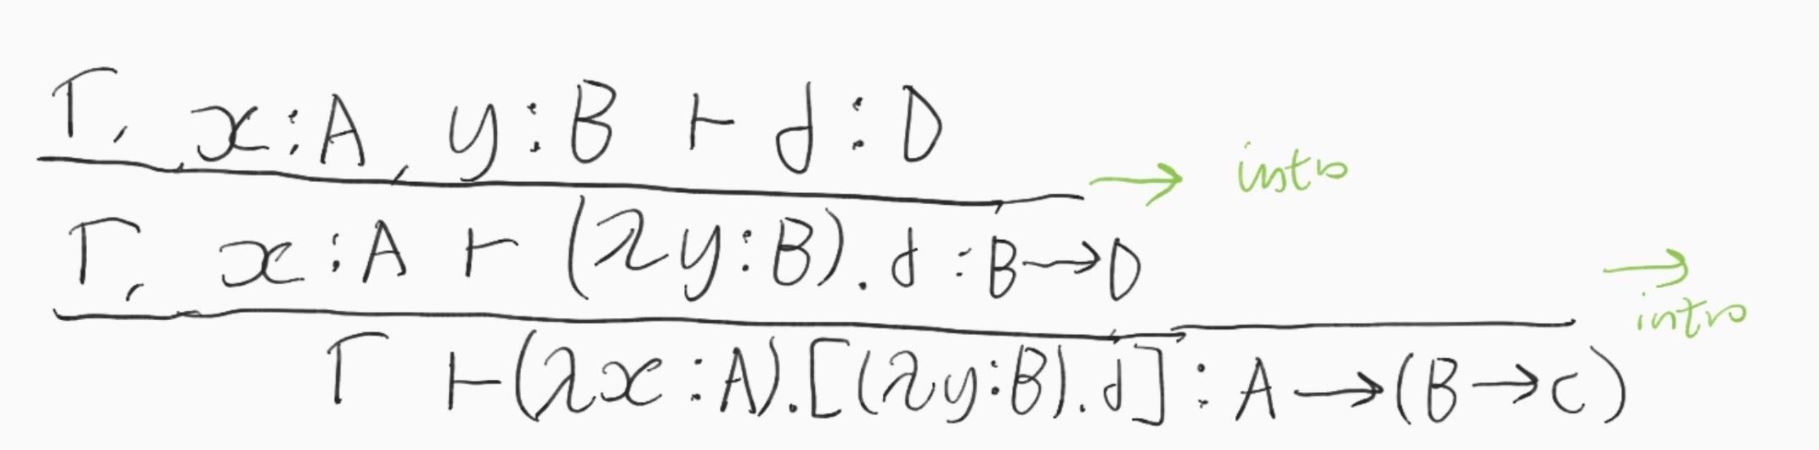 Γ, x:A, y:B ⊢ d:D
→ intro
Γ, x:A ⊢ (λy:B).d:B→D
→ intro
Γ ⊢ (λx:A).[(λy:B).d]:A→(B→C)